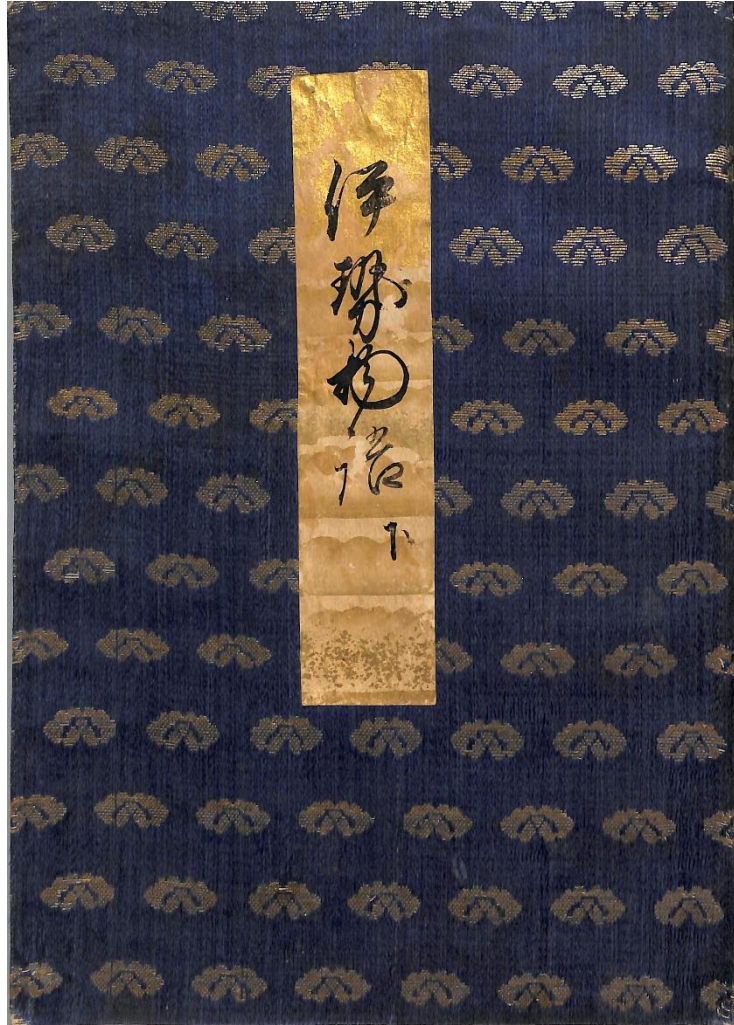 伊勢物語 下